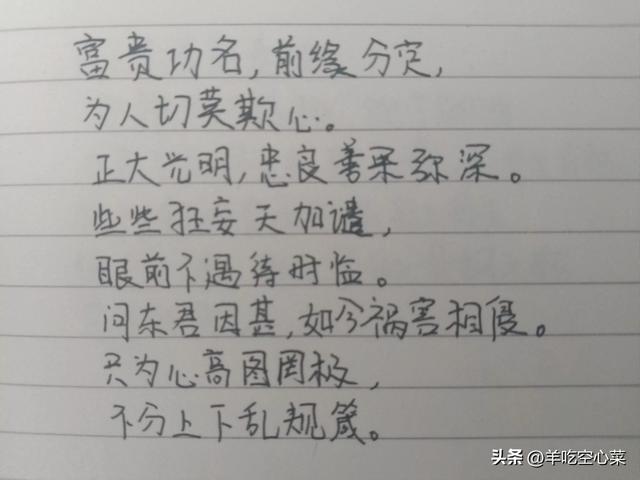 富贵功名,前缘分定,
为人切莫欺心。
正大光明,忠良善果弥深。
些些狂妄天加谴,
眼前不遇待时临。
问东君因甚,如今祸害相侵。
只为心高图罔极,
不分上下乱规箴。
头条@羊吃空心菜